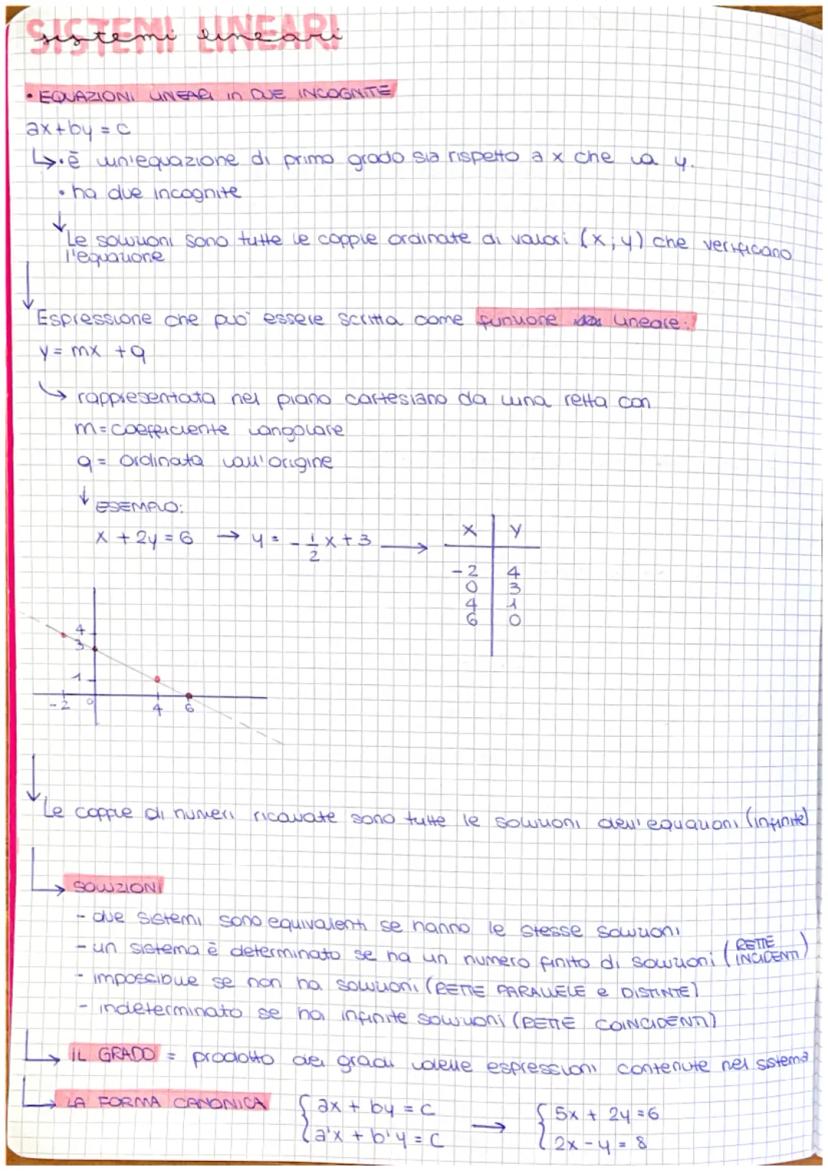 SISTEMI LINEARI
sistemi lineari
• EQUAZIONI LINEARI in DUE INCOGNITE
ax+by = c
↳ • è un'equazione di primo grado sia rispetto a x che a y.
• ha due incognite
↓
Le soluzioni sono tutte le coppie ordinate di valori (x; y) che verificano
l'equazione
↓
Espressione che può essere scritta come funzione lineare:
y = mx + q
↳ rappresentata nel piano cartesiano da una retta con
m = coefficiente angolare
q = ordinata all'origine
↓ ESEMPIO:
x + 2y = 6 → y = - 1/2 x + 3 →
x | y
-2 | 4
0 | 3
4 | 1
6 | 0
4
3
1
-2 0 4 6
↓
Le coppie di numeri ricavate sono tutte le soluzioni dell'equazioni (infinite)
↳ SOLUZIONI
- due sistemi sono equivalenti se hanno le stesse soluzioni
- un sistema è determinato se ha un numero finito di soluzioni (RETTE INCIDENTI)
- impossibile se non ha soluzioni (RETTE PARALLELE e DISTINTE)
- indeterminato se ha infinite soluzioni (RETTE COINCIDENTI)
↳ IL GRADO = prodotto dei gradi delle espressioni contenute nel sistema
↳ LA FORMA CANONICA { ax + by = c → { 5x + 2y = 6
{ a'x + b'y = c { 2x - y = 8